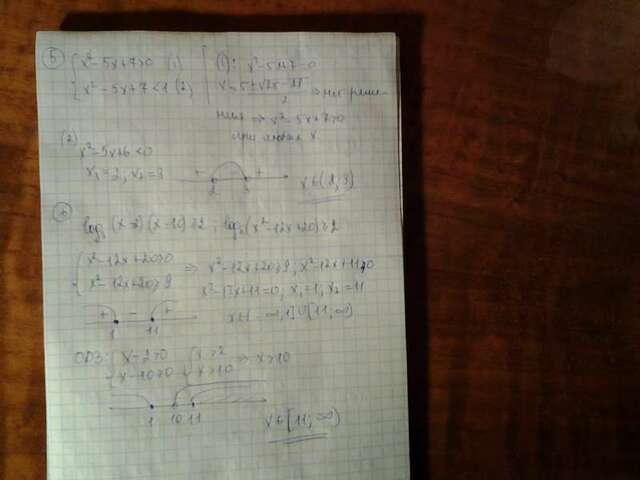 5) { x² - 5x + 7 > 0 (1)
{ x² - 5x + 7 < 1 (2)
(1): x² - 5x + 7 = 0
x = 5 ± √25 - 28 / 2 ⇒ нет реше-
ния ⇒ x² - 5x + 7 > 0
при любых x.
(2)
x² - 5x + 6 < 0
x₁ = 2, x₂ = 3
+ - +
2 3
x ∈ (2; 3)
log₃ (x - 2)(x - 10) ≥ 2; log₃ (x² - 12x + 20) ≥ 2
{ x² - 12x + 20 > 0
{ x² - 12x + 20 ≥ 9
⇒ x² - 12x + 20 ≥ 9; x² - 12x + 11 ≥ 0
x² - 12x + 11 = 0, x₁ = 1, x₂ = 11
+ - +
1 11
x ∈ (-∞, 1] ∪ [11; ∞)
ОДЗ: { x - 2 > 0 { x > 2
{ x - 10 > 0 { x > 10 ⇒ x > 10
1 10 11
x ∈ [11; ∞)